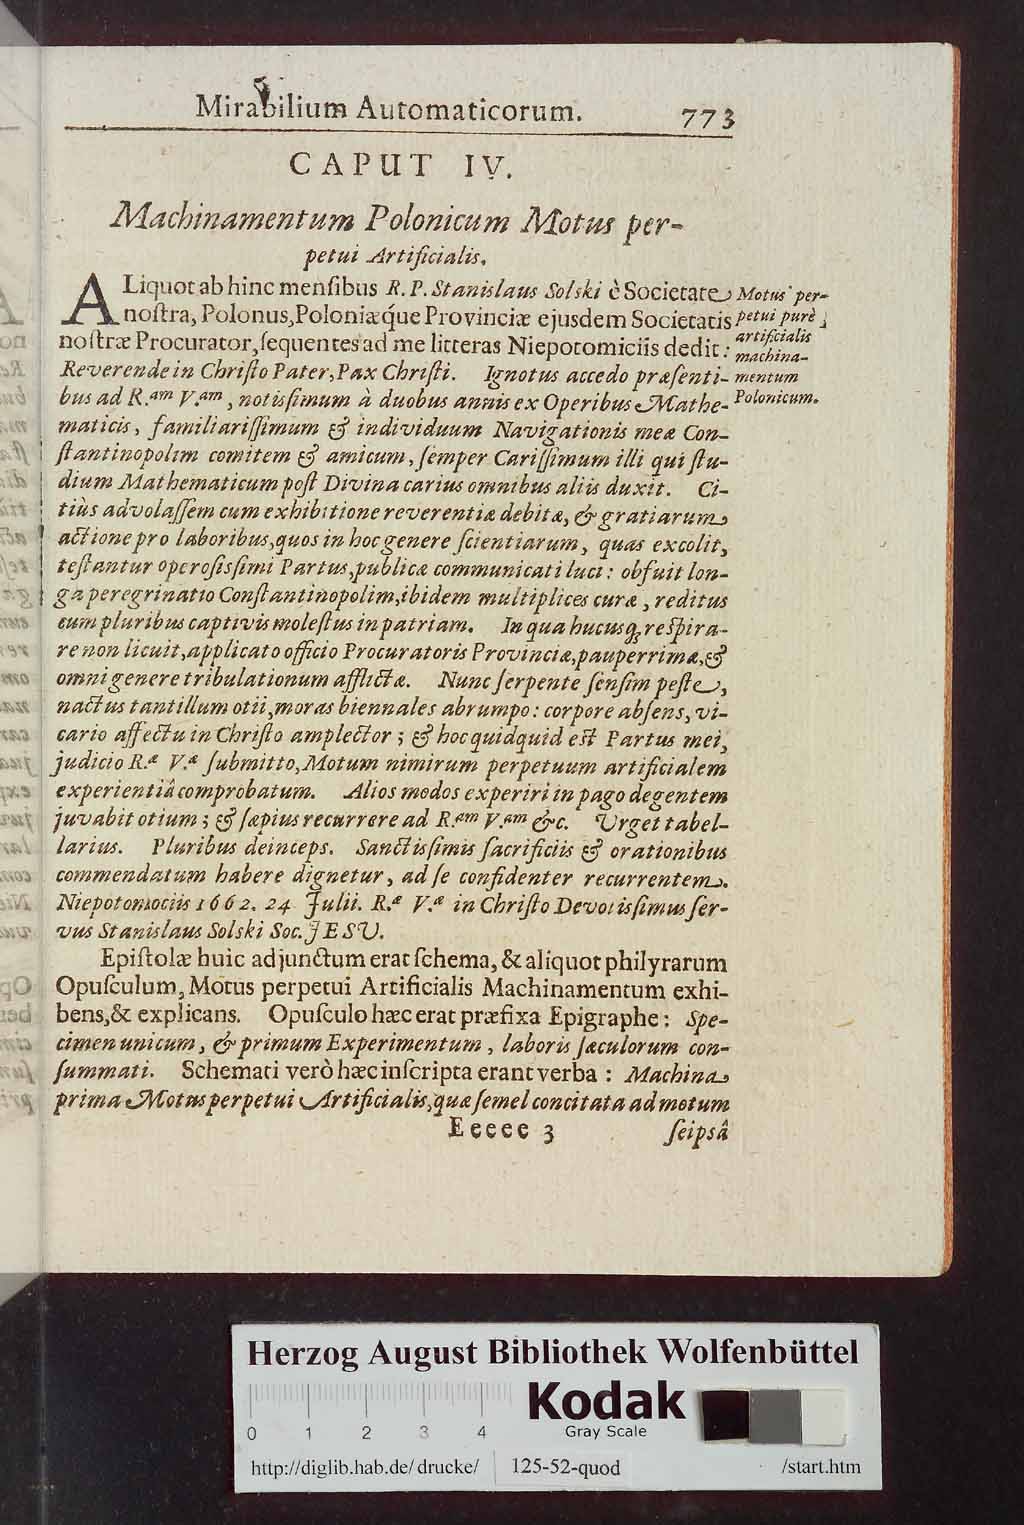 Mirabilium Automaticorum. 773
CAPUT IV.
Machinamentum Polonicum Motus per-
petui Artificialis.
ALiquot ab hinc menſibus R. P. Stanislaus Solski è Societate
noſtra, Polonus, Poloniæque Provinciæ ejusdem Societatis
noſtræ Procurator, ſequentes ad me litteras Niepotomiciis dedit:
Reverende in Chriſto Pater, Pax Chriſti. Ignotus accedo præſenti-
bus ad R.am V.am, notisſimum à duobus annis ex Operibus Mathe-
maticis, familiariſſimum & individuum Navigationis meæ Con-
ſtantinopolim comitem & amicum, ſemper Cariſſimum illi qui ſtu-
dium Mathematicum poſt Divina carius omnibus aliis duxit. Ci-
tiùs advolaſſem cum exhibitione reverentiæ debitæ, & gratiarum
actione pro laboribus, quos in hoc genere ſcientiarum, quas excolit,
teſtantur operoſisſimi Partus, publicæ communicati luci: obfuit lon-
ga peregrinatio Conſtantinopolim, ibidem multiplices curæ, reditus
cum pluribus captivis moleſtus in patriam. In qua hucusq; reſpira-
re non licuit, applicato officio Procuratoris Provinciæ, pauperrimæ, &
omni genere tribulationum afflictæ. Nunc ſerpente ſenſim peſte,
nactus tantillum otii, moras biennales abrumpo: corpore abſens, vi-
cario affectu in Chriſto amplector; & hoc quidquid eſt Partus mei,
judicio R.æ V.æ ſubmitto, Motum nimirum perpetuum artificialem
experientiâ comprobatum. Alios modos experiri in pago degentem
juvabit otium; & ſæpius recurrere ad R.am V.am &c. Urget tabel-
larius. Pluribus deinceps. Sanctisſimis ſacrificiis & orationibus
commendatum habere dignetur, ad ſe confidenter recurrentem.
Niepotomociis 1662. 24 Julii. R.æ V.æ in Chriſto Devotisſimus ſer-
vus Stanislaus Solski Soc. JESU.
Epiſtolæ huic adjunctum erat ſchema, & aliquot philyrarum
Opuſculum, Motûs perpetui Artificialis Machinamentum exhi-
bens, & explicans. Opuſculo hæc erat præfixa Epigraphe: Spe-
cimen unicum, & primum Experimentum, laboris ſæculorum con-
ſummati. Schemati verò hæc inſcripta erant verba: Machina
prima Motus perpetui Artificialis, quæ ſemel concitata ad motum
Eeeee 3 ſeipsâ
Motus per-
petui purè
artificialis
machina-
mentum
Polonicum.
Herzog August Bibliothek Wolfenbüttel
0 1 2 3 4
Kodak
Gray Scale
http://diglib.hab.de/drucke/ 125-52-quod /start.htm